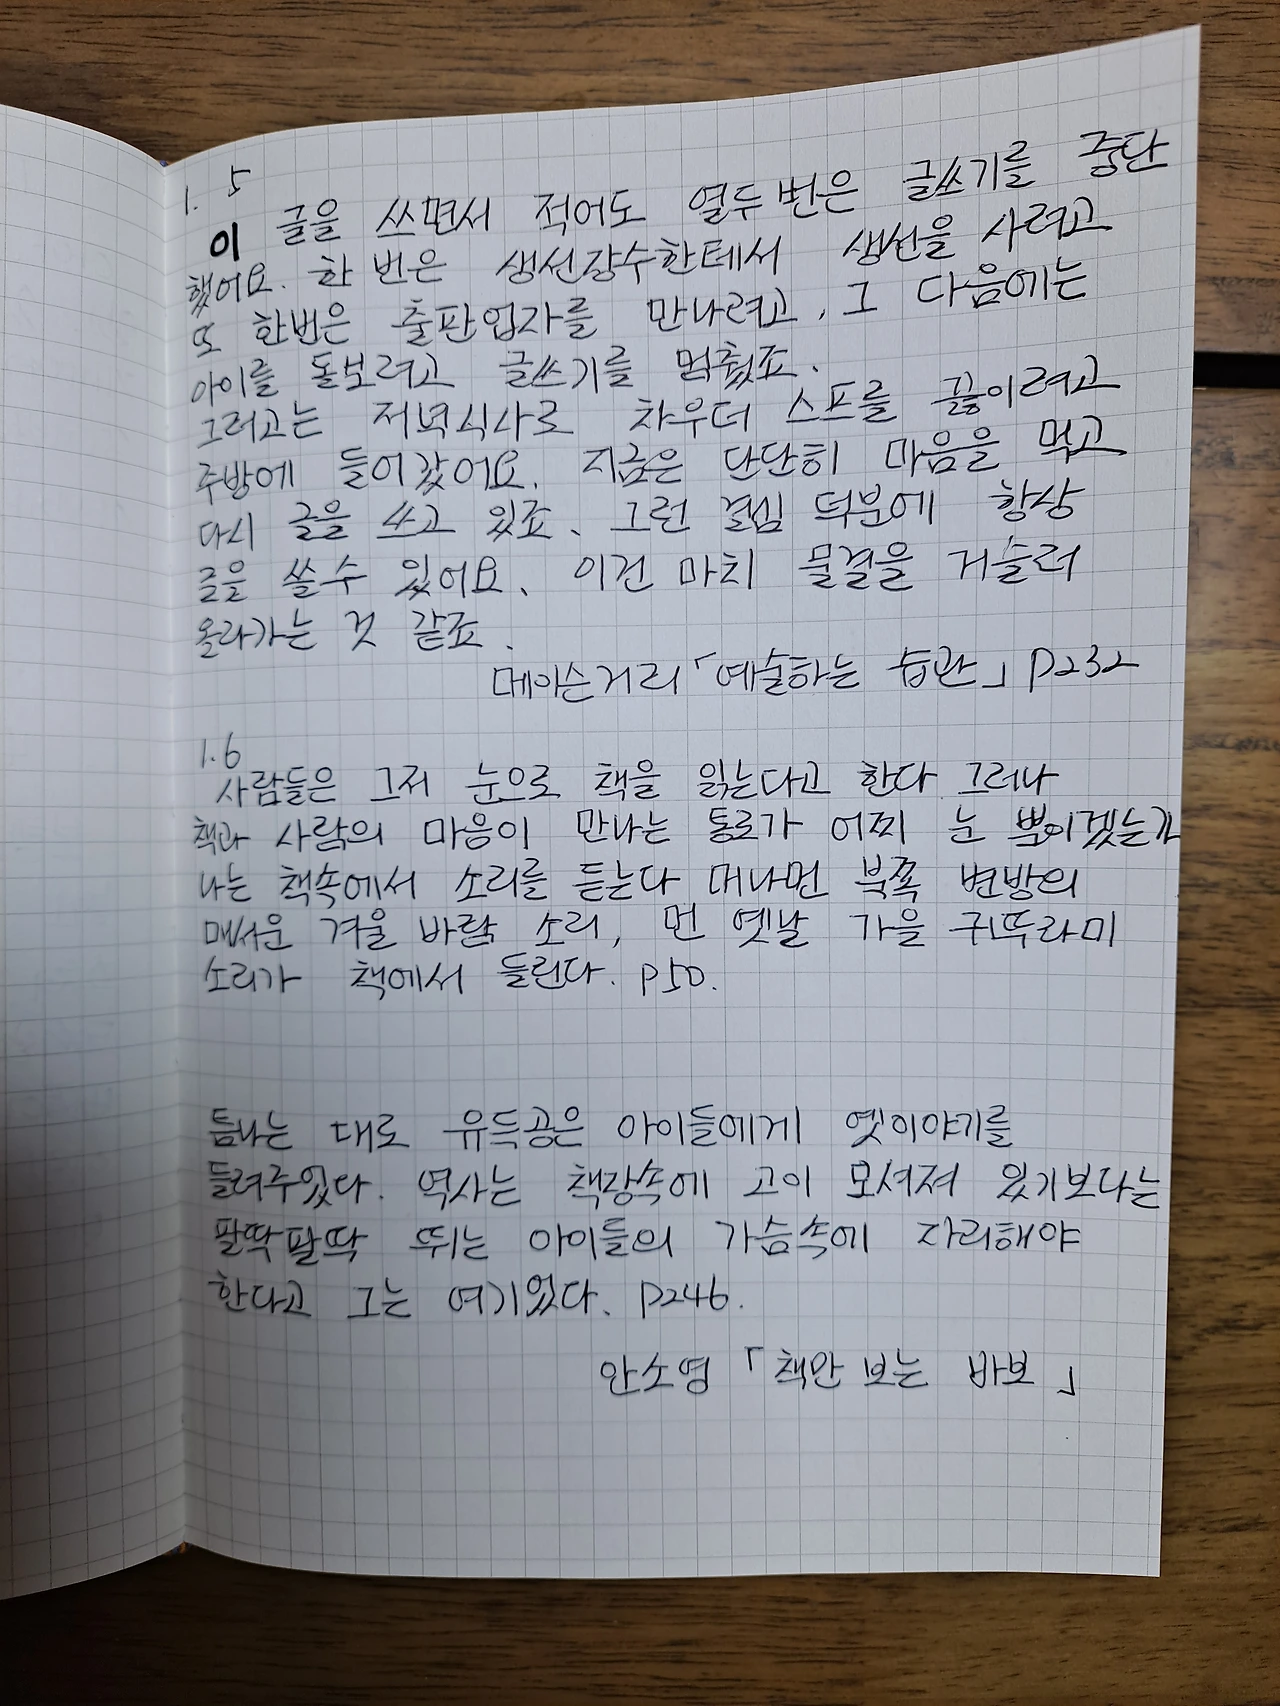 1. 5
이 글을 쓰면서 적어도 열두번은 글쓰기를 중단
했어요. 한 번은 생선장수한테서 생선을 사려고
또 한번은 출판업자를 만나려고, 그 다음에는
아이를 돌보려고 글쓰기를 멈췄죠.
그러고는 저녁식사로 차우더 스프를 끓이려고
주방에 들어갔어요. 지금은 단단히 마음을 먹고
다시 글을 쓰고 있죠. 그런 결심 덕분에 항상
글을 쓸수 있어요. 이건 마치 물결을 거슬러
올라가는 것 같죠.
메이슨커리 「예술하는 습관」 P232
1.6
사람들은 그저 눈으로 책을 읽는다고 한다 그러나
책과 사람의 마음이 만나는 통로가 어찌 눈 뿐이겠는가
나는 책속에서 소리를 듣는다 머나먼 북쪽 변방의
매서운 겨울 바람 소리, 먼 옛날 가을 귀뚜라미
소리가 책에서 들린다. P50.
틈나는 대로 유득공은 아이들에게 옛이야기를
들려주었다. 역사는 책장속에 고이 모셔져 있기보다는
팔딱팔딱 뛰는 아이들의 가슴속에 자리해야
한다고 그는 여기었다. P246.
안소영 「책만 보는 바보」